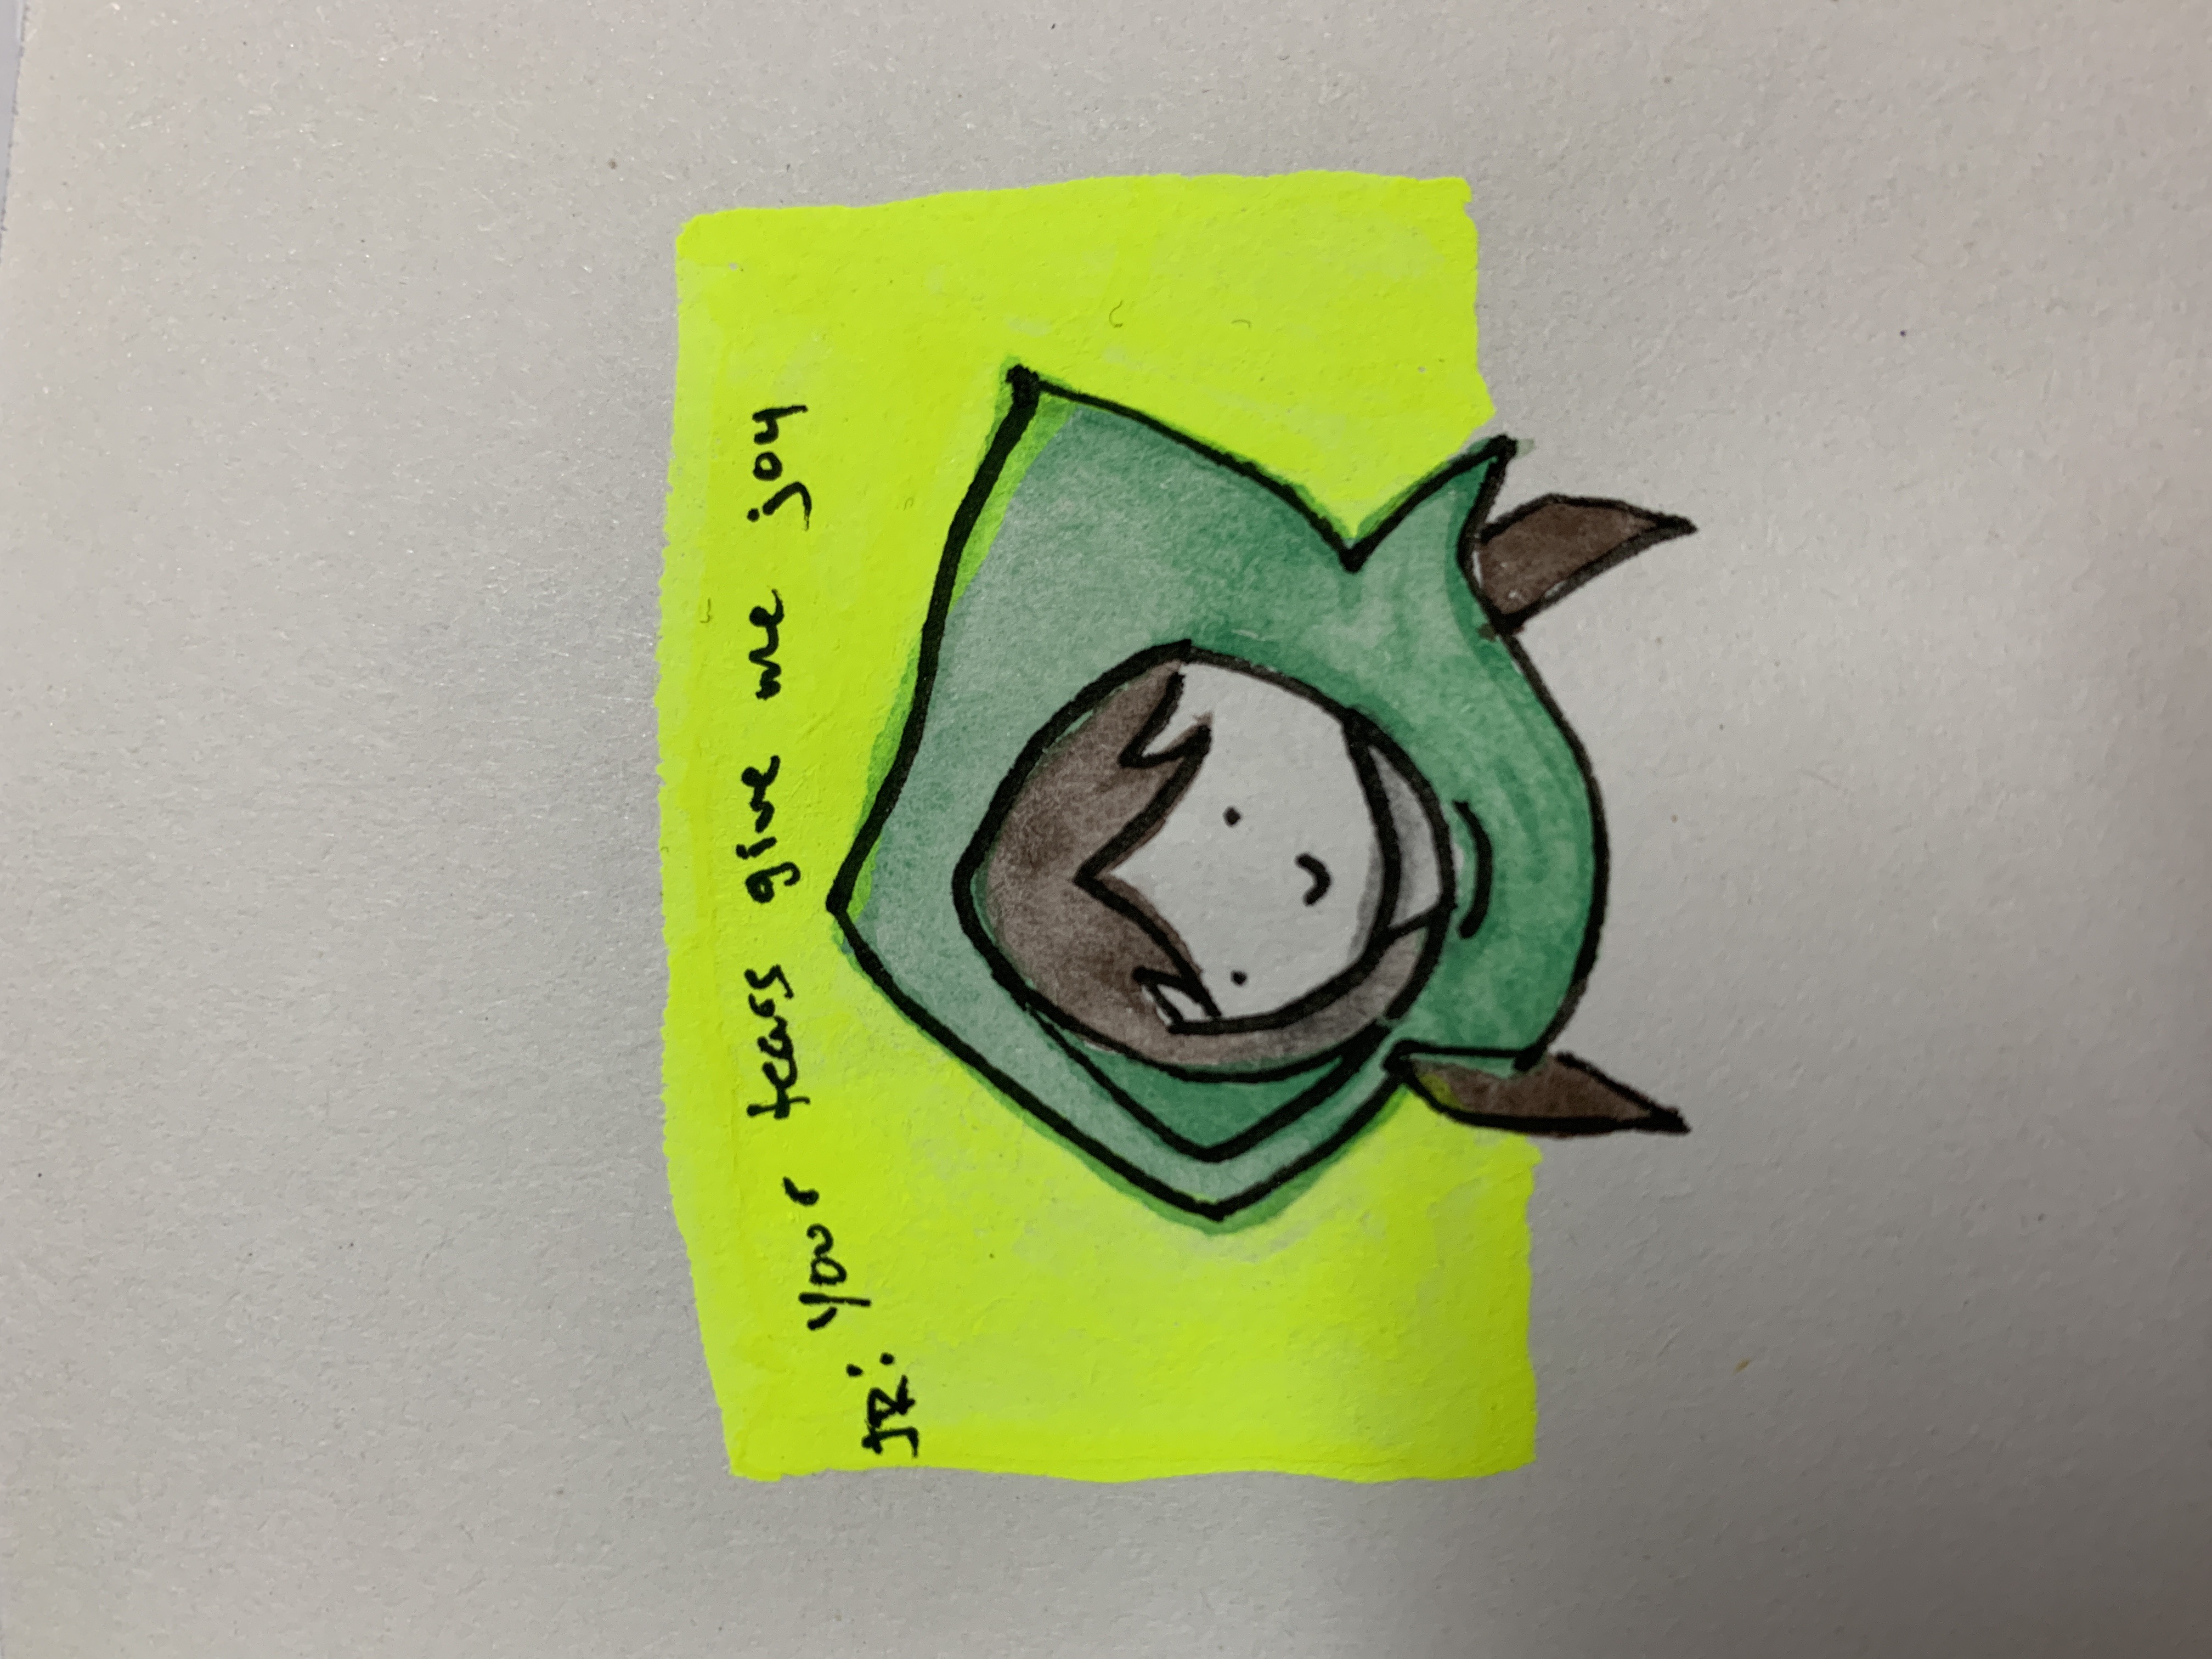 JR: Your tears give me joy